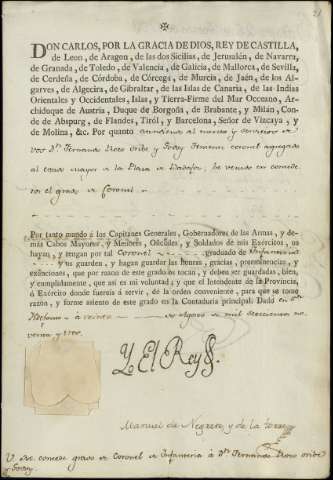 DON CARLOS, POR LA GRACIA DE DIOS, REY DE CASTILLA,
de Leon, de Aragon, de las dos Sicilias, de Jerusalén, de Navarra,
de Granada, de Toledo, de Valencia, de Galicia, de Mallorca, de Sevilla,
de Cerdeña, de Córdoba, de Córcega, de Murcia, de Jaén, de los Al-
garves, de Algecira, de Gibraltar, de las Islas de Canaria, de las Indias
Orientales y Occidentales, Islas, y Tierra-Firme del Mar Oceano, Ar-
chiduque de Austria, Duque de Borgoña, de Brabante, y Milán, Con-
de de Abspurg, de Flandes, Tiról, y Barcelona, Señor de Vizcaya, y
de Molina, &c. Por quanto atendiendo al merito y servicios de
vos Dn. Fernando Teniente coronel agregado
al estado mayor de la Plaza de Badajoz; he venido en concede-
ros el grado de Coronel
Por tanto mando á los Capitanes Generales, Gobernadores de las Armas, y de-
más Cabos Mayores, y Menores, Oficiales, y Soldados de mis Exércitos, os
hayan, y tengan por tal Coronel graduado de Infanteria
y os guarden, y hagan guardar las honras, gracias, preeminencias, y
exênciones, que por razon de este grado os tocan, y deben ser guardadas, bien,
y cumplidamente, que así es mi voluntad; y que el Intendente de la Provincia,
ó Exército donde fuereis á servir, dé la orden conveniente, para que se tome
razon, y forme asiento de este grado en la Contaduría principal. Dado en Sn.
Ildefonso á veinte de Agosto de mil setecientos no-
venta y tres.
Yo El Rey
Manuel de Negrete y de la Torre
V. M. concede grado de Coronel de Infanteria á Dn. Fernando